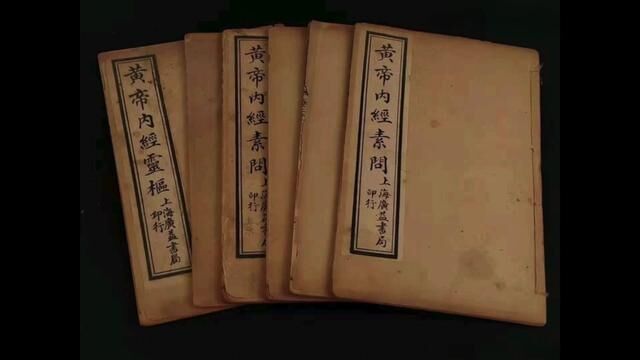 黃帝內經素問
上海廣益書局
印行
黃帝內經素問
上海廣益書局
印行
黃帝內經靈樞
上海廣益書局
印行